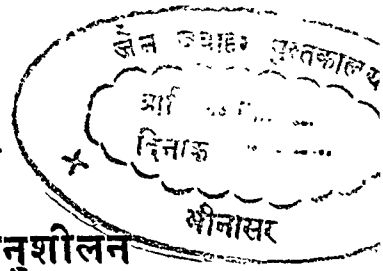 जैन जवाहर पुस्तकालय
दिनाक
भीनासर
नुशीलन